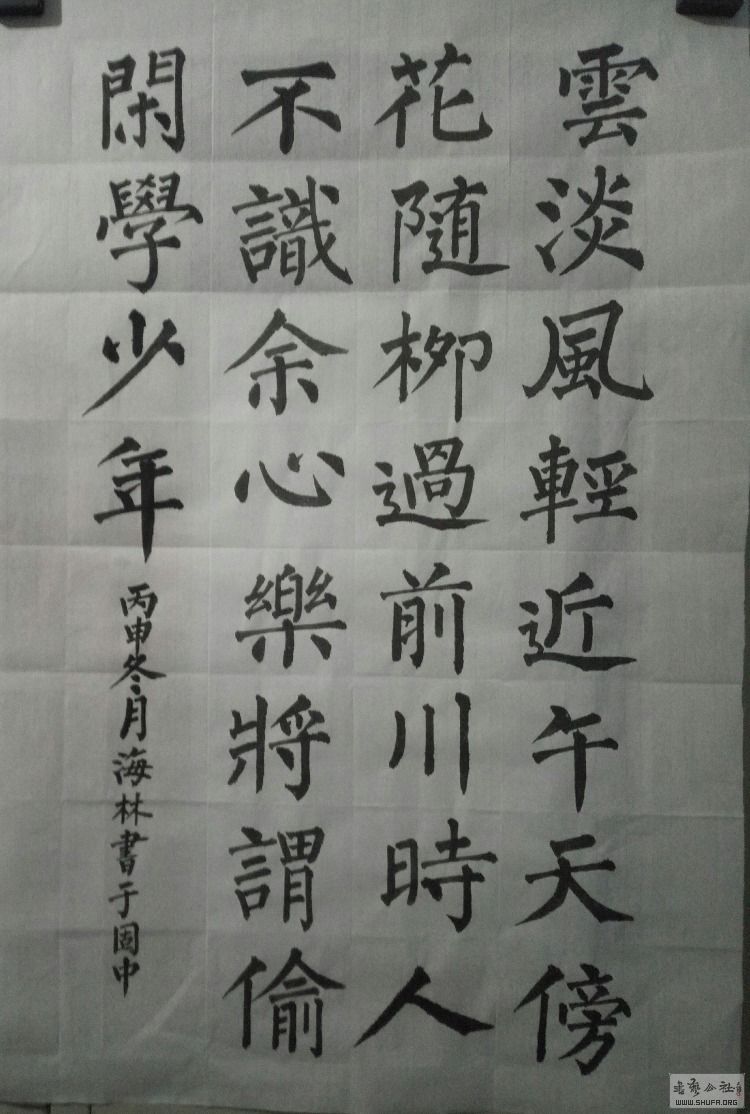 雲淡風輕近午天傍
花随柳過前川時人
不識余心樂將謂偷
閑學少年
丙申冬月海林書于固中
WWW.SHUFA.ORG